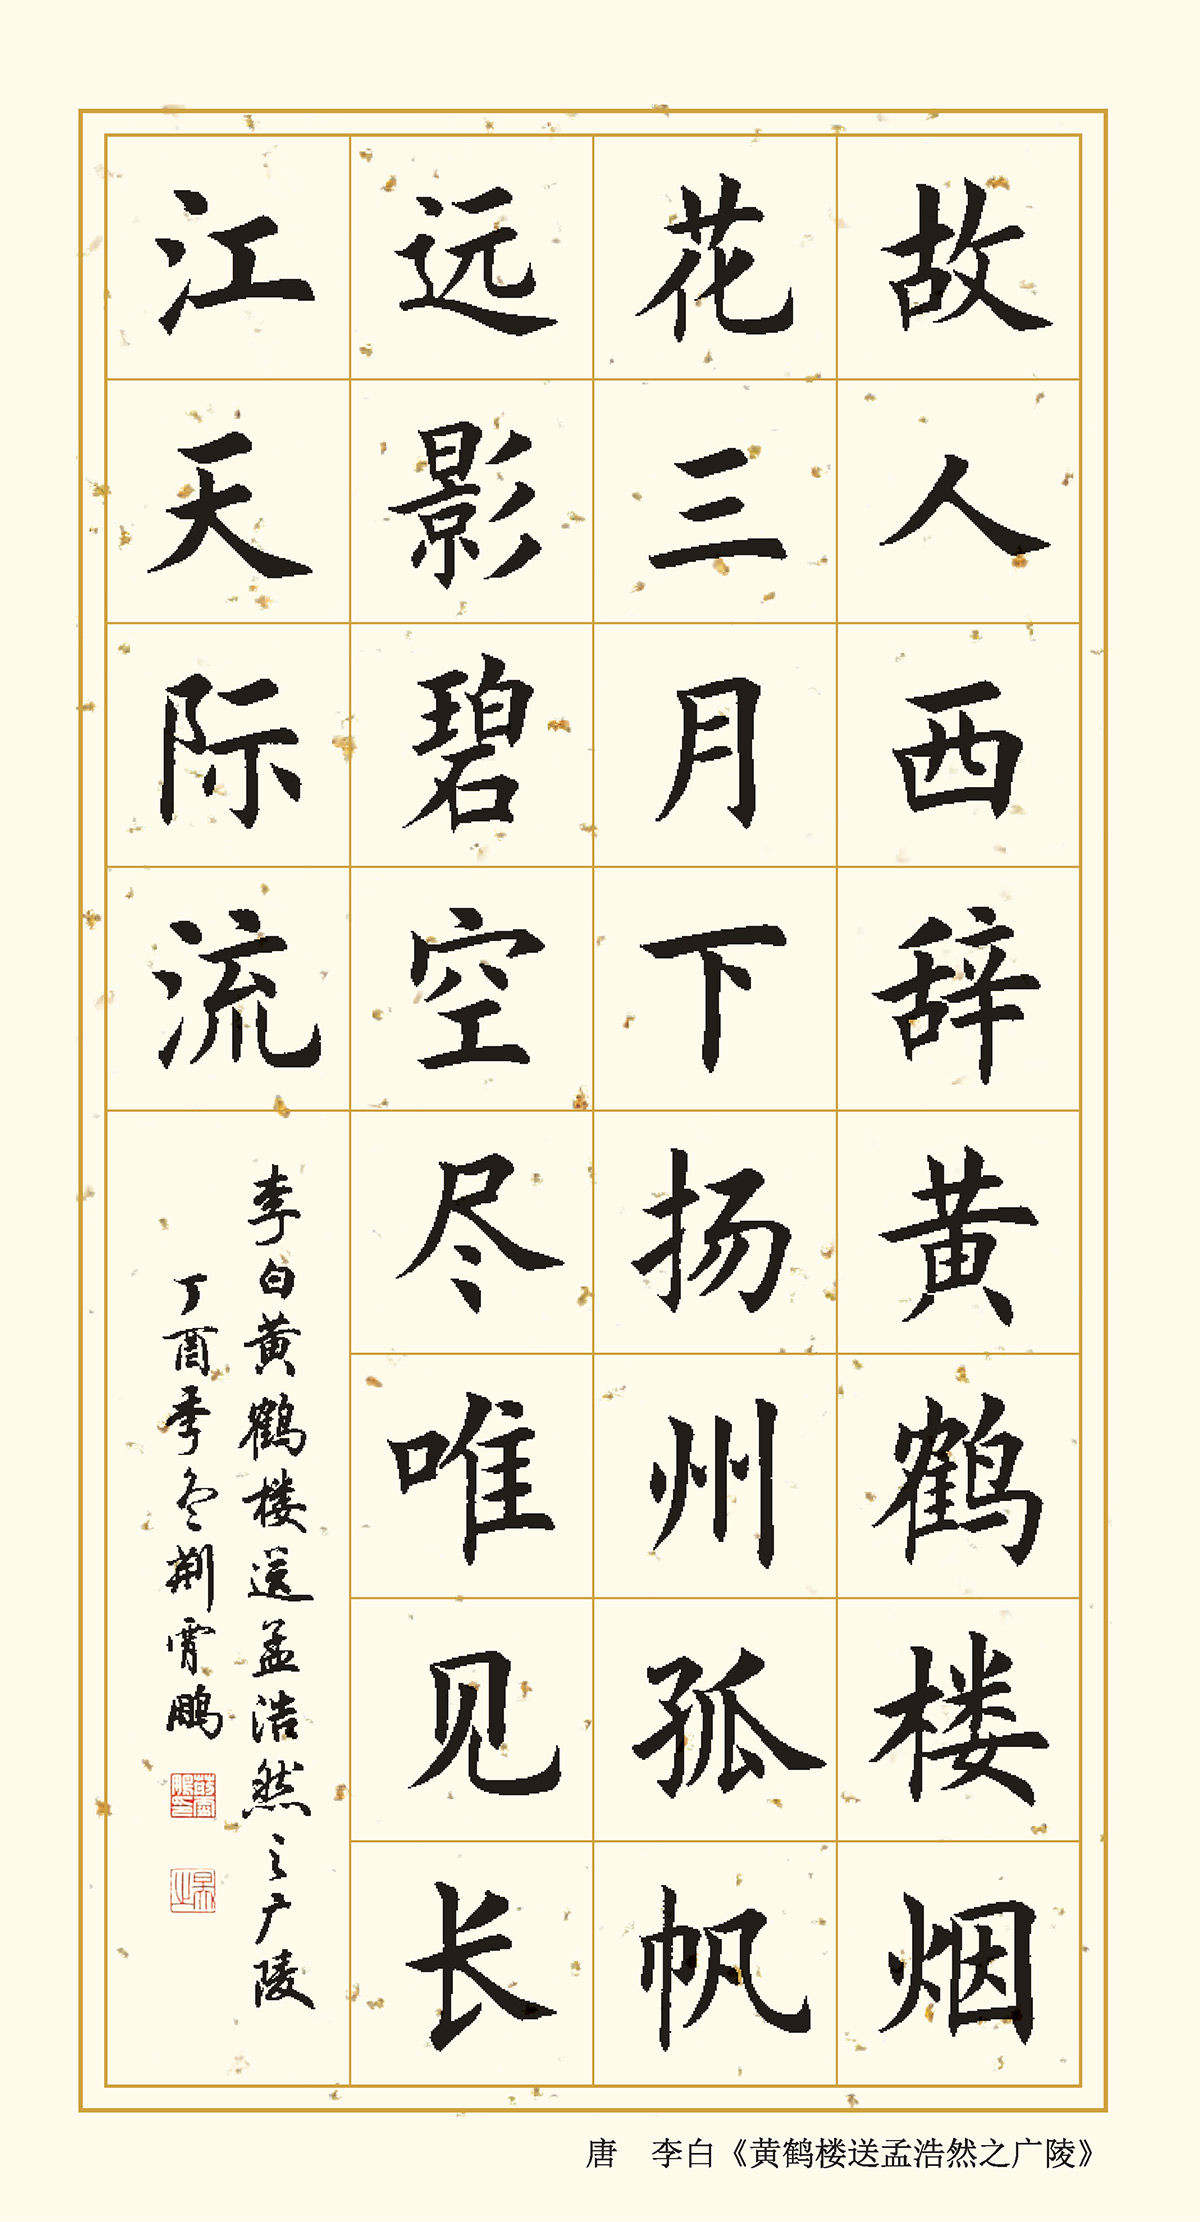 故人西辞黄鹤楼烟
花三月下扬州孤帆
远影碧空尽唯见长
江天际流
李白黄鹤楼送孟浩然之广陵
丁酉季冬荆霄鹏
唐　李白《黄鹤楼送孟浩然之广陵》